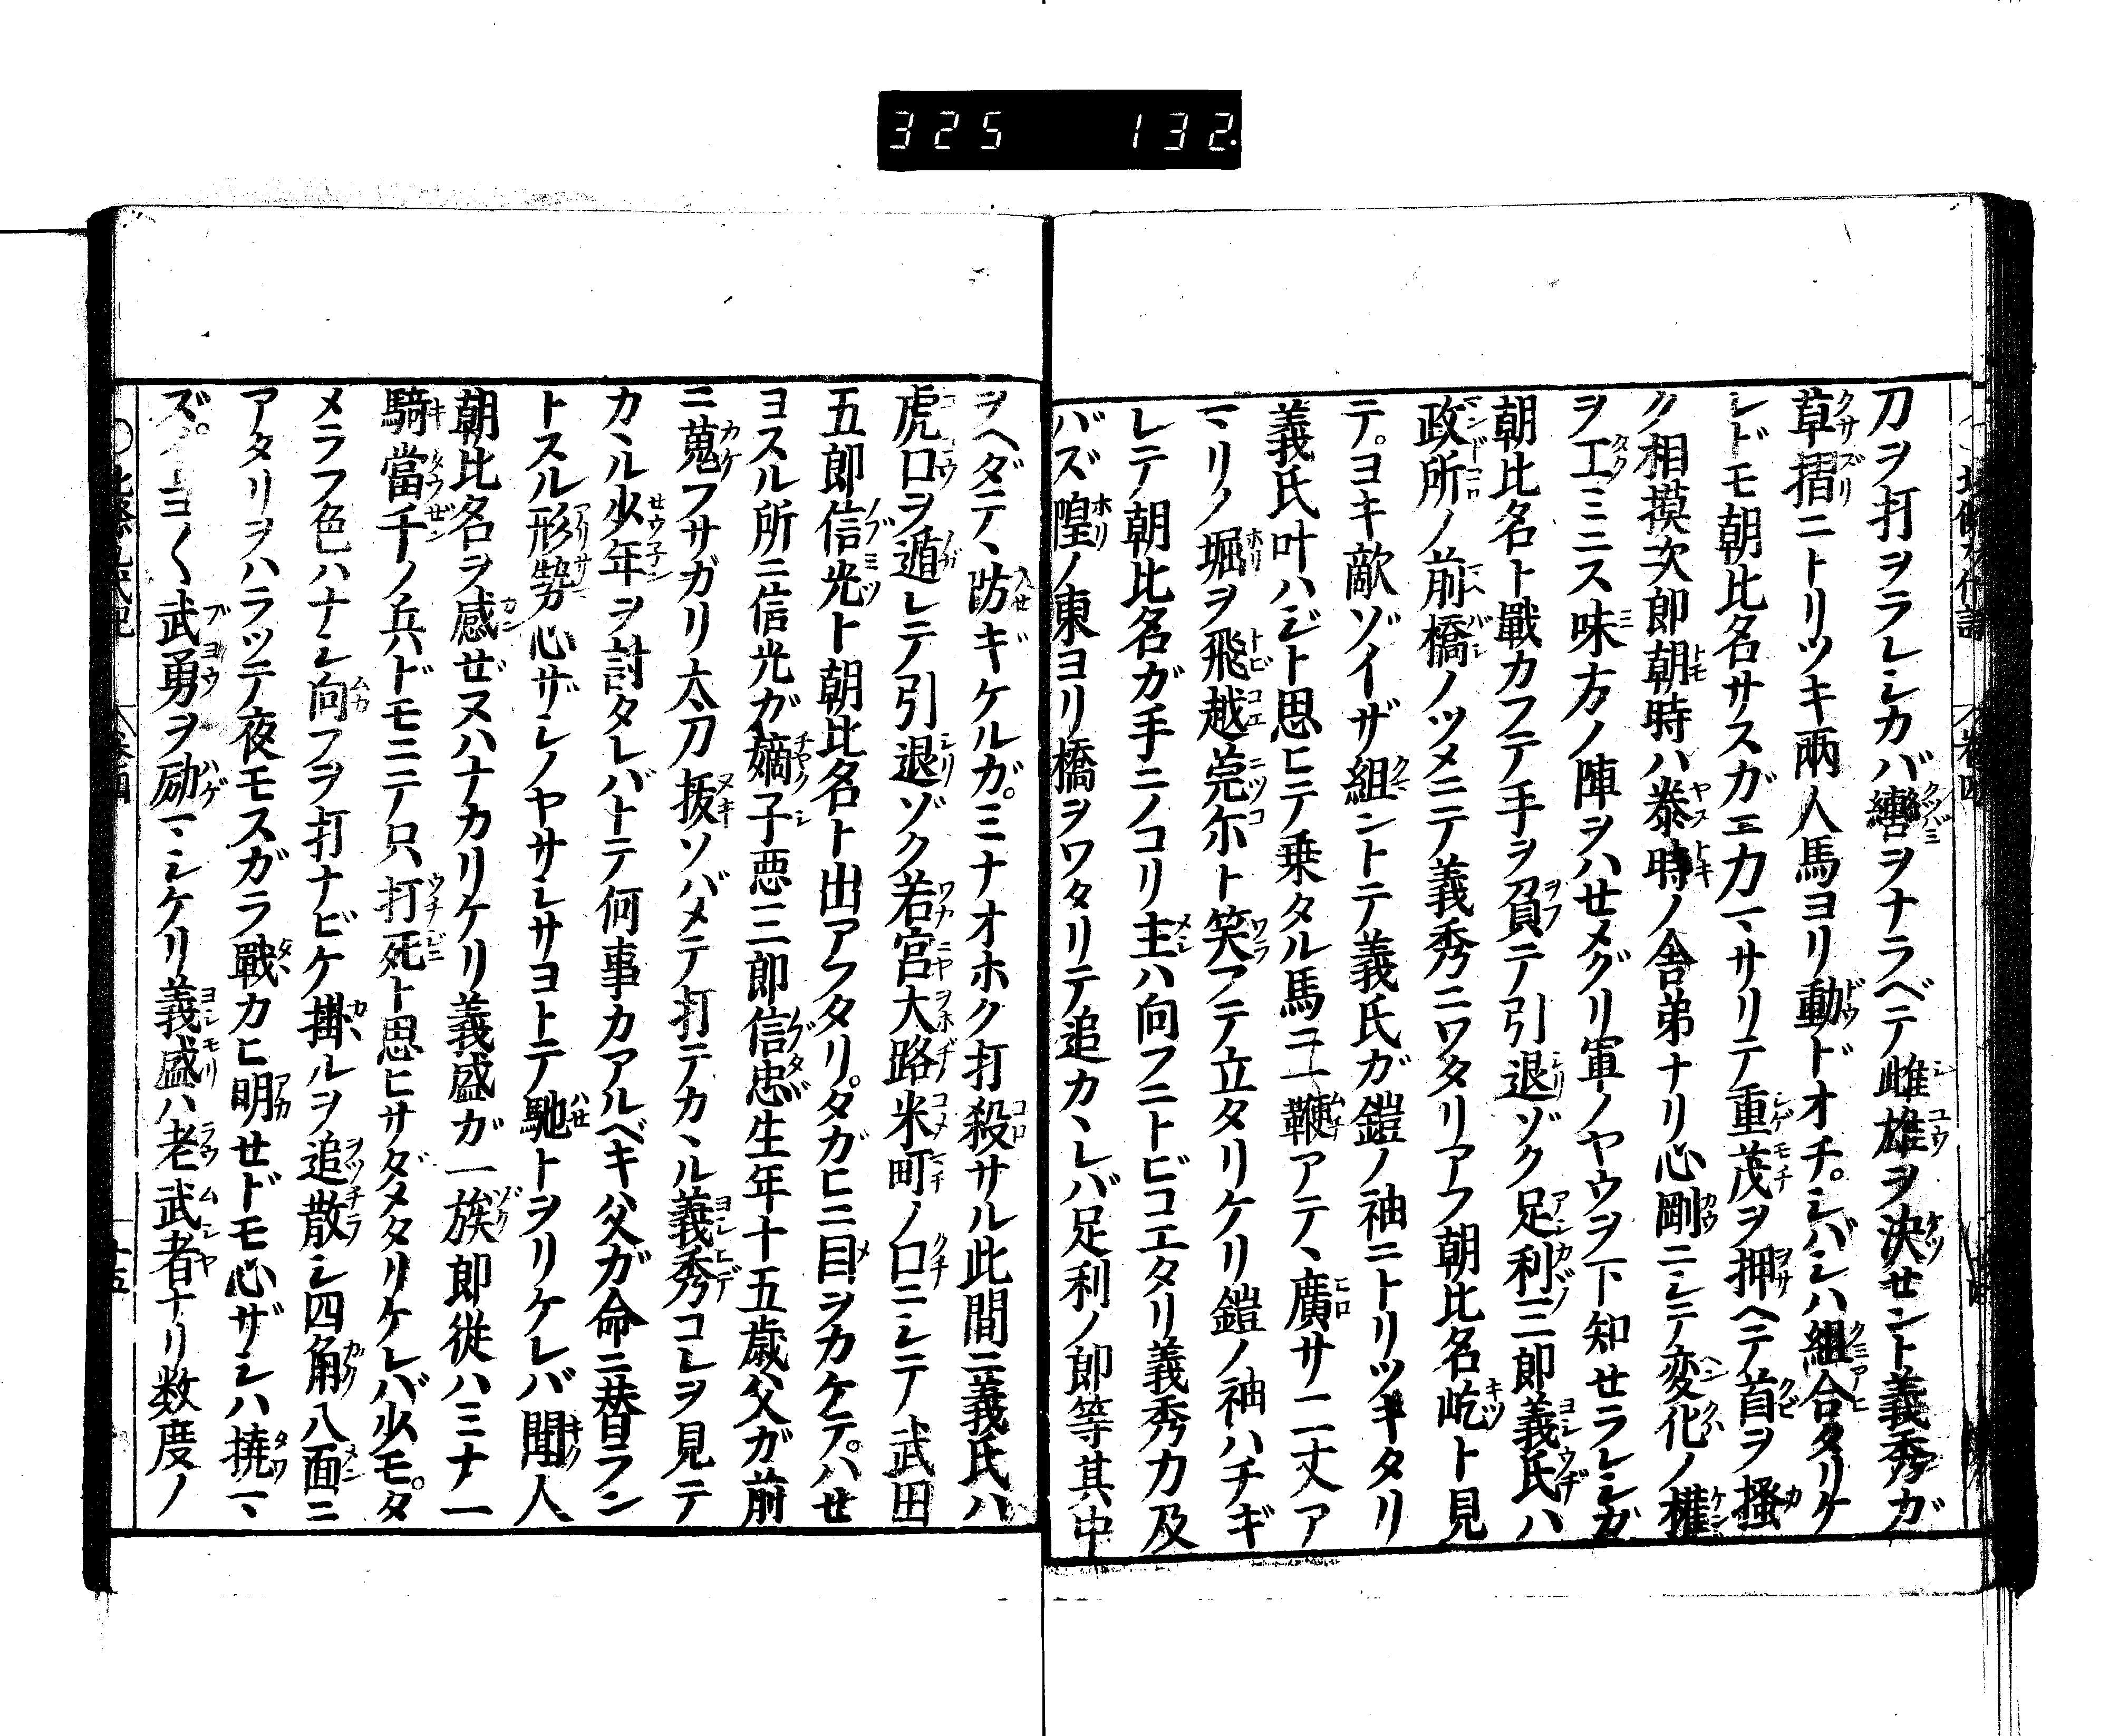 325 132
刀ヲ打ヲラレシカバ轡ヲナラベテ雌雄ヲ決せント義秀ガ
草摺ニトリツキ兩人馬ヨリ動ドオチ。シバシハ組合タリケ
レドモ朝比名サスガニ力マサリテ重茂ヲ押ヘテ首ヲ搔
ク相摸次郎朝時ハ泰時ノ舎弟ナリ心剛ニシテ変化ノ権
ヲ工ミニス味方ノ陣ヲハせメグリ軍ノヤウヲ下知せラレシガ
朝比名ト戰カフテ手ヲ負テ引退ゾク足利三郎義氏ハ
政所ノ前橋ノツメニテ義秀ニワタリアフ朝比名屹ト見
テ。ヨキ敵ゾイザ組ントテ義氏ガ鎧ノ袖ニトリツキタリ
義氏叶ハジト思ヒテ乗タル馬ニ一鞭アテヽ廣サ二丈ア
マリノ堀ヲ飛越莞尓ト笑アテ立タリケリ鎧ノ袖ハチギ
レテ朝比名ガ手ニノコリ主ハ向フニトビコエタリ義秀力及
バズ隍ノ東ヨリ橋ヲワタリテ追カヽレバ足利ノ郎等其中
ヲヘダテヽ防ギケルガ。ミナオホク打殺サル此間ニ義氏ハ
虎口ヲ遁レテ引退ゾク若宮大路米町ノ口ニシテ武田
五郎信光ト朝比名ト出アフタリ。タガヒニ目ヲカケテ。ハせ
ヨスル所ニ信光ガ嫡子悪三郎信忠生年十五歳父ガ前
ニ蒐フサガリ太刀抜ソバメテ打テカヽル義秀コレヲ見テ
カヽル少年ヲ討タレバトテ何事カアルベキ父ガ命ニ替ラン
トスル形勢心ザシノヤサシサヨトテ馳トヲリケレバ聞人
朝比名ヲ感ぜヌハナカリケリ義盛ガ一族郎従ハミナ一
騎當千ノ兵ドモニテ只打死ト思ヒサダメタリケレバ少モ。タ
メラフ色ハナシ向フヲ打ナビケ掛ルヲ追散シ四角八面ニ
アタリヲハラッテ夜モスガラ戰カヒ明せドモ心ザシハ撓マ
ズ。イヨ〱武勇ヲ励マシケリ義盛ハ老武者ナリ数度ノ